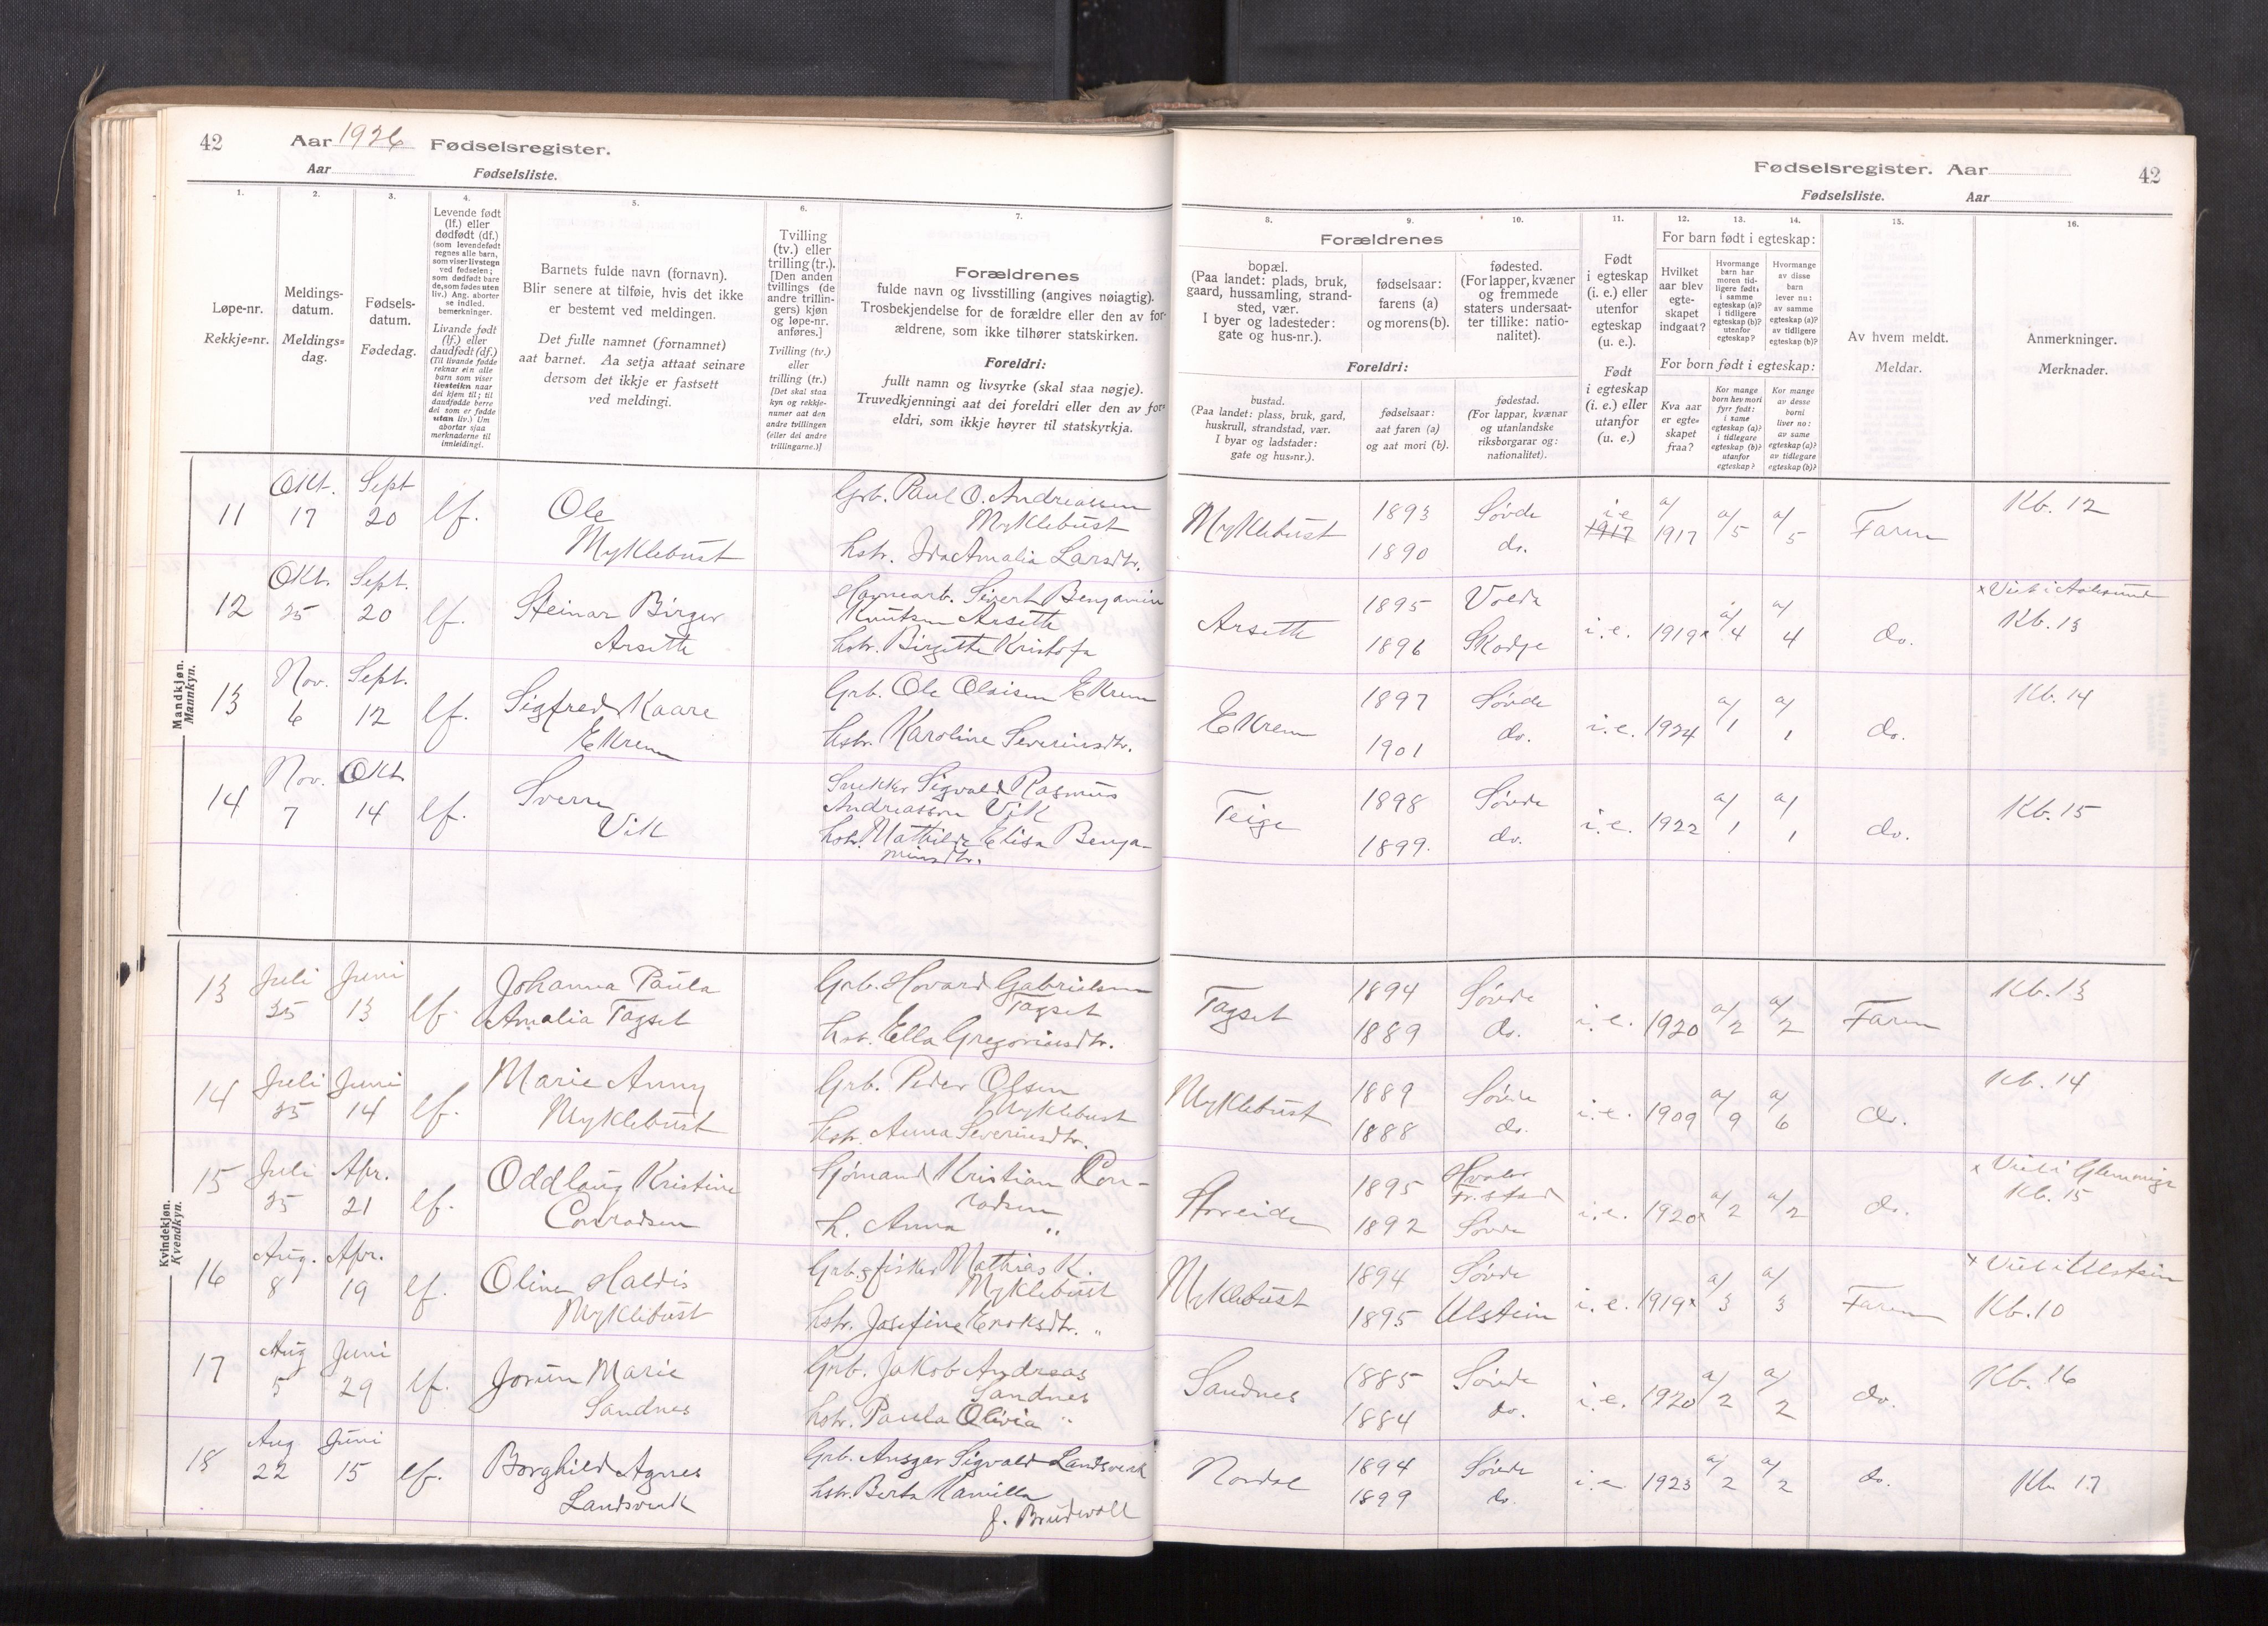 42 Aar 1926 Fødselsregister.
Aar Fødselsliste.
1.
Løpe-nr.
Rekkje=nr.
2.
Meldings-
datum.
Meldings=
dag.
3.
Fødsels-
datum.
Fødedag.
4.
Levende født
(lf.) eller
dødfødt (df.)
(som levendefødt
regnes alle barn,
som viser livstegn
ved fødselen;
som dødfødt bare
de, som fødes uten
liv.) Ang. aborter
se indled.
bemerkninger.
Livande født
(lf.) eller
daudfødt (df.)
(Til livande fødde
reknar ein alle
barn som viser
livsteikn naar
dei kjem til; til
daudfødde berre
dei som er fødde
utan liv.) Um
abortar sjaa
merknaderne til
innleidingi.
5.
Barnets fulde navn (fornavn).
Blir senere at tilføie, hvis det ikke
er bestemt ved meldingen.
Det fulle namnet (fornamnet)
aat barnet. Aa setja attaat seinare
dersom det ikkje er fastsett
ved meldingi.
6.
Tvilling
(tv.) eller
trilling (tr.).
[Den anden
tvillings (de
andre trillin-
gers) kjøn
og løpe-nr.
anføres.]
Tvilling (tv.)
eller
trilling (tr.)
[Det skal staa
kyn og rekkje-
numer aat den
andre tvillingen
(eller dei andre
trillingarne.)]
7.
Forældrenes
fulde navn og livsstilling (angives nøiagtig).
Trosbekjendelse for de forældre eller den av for-
ældrene, som ikke tilhører statskirken.
Foreldri:
fullt namn og livsyrke (skal staa nøgje).
Truvedkjenningi aat dei foreldri eller den av for-
eldri, som ikkje høyrer til statskyrkja.
Fødselsregister. Aar 42
Fødselsliste. Aar
8. 9. 10.
Forældrenes
bopæl.
(Paa landet: plads, bruk,
gaard, hussamling, strand-
sted, vær.
I byer og ladesteder:
gate og hus-nr.).
fødselsaar:
farens (a)
og morens (b).
fødested.
(For lapper, kvæner
og fremmede
staters undersaat-
ter tillike: natio-
nalitet).
Foreldri:
bustad.
(Paa landet: plass, bruk, gard,
huskrull, strandstad, vær.
I byar og ladstader:
gate og hus=nr.).
fødselsaar:
aat faren (a)
og aat mori (b).
fødestad.
(For lappar, kvænar
og utanlandske
riksborgarar og:
nationalitet).
11.
Født
i egteskap
(i. e.) eller
utenfor
egteskap
(u. e.).
Født
i egteskap
(i. e.) eller
utanfor
(u. e.)
12. 13. 14.
For barn født i egteskap:
Hvilket
aar blev
egte-
skapet
indgaat?
Hvormange
barn har
moren tid-
ligere født:
i samme
egteskap (a)?
i tidligere
egteskap (b)?
utenfor
egteskap?
Hvormange
av disse
barn
lever nu:
av samme
egteskap (a)?
av tidligere
egteskap (b)?
For born født i egteskap:
Kva aar
er egte-
skapet
fraa?
Kor mange
born hev mori
fyrr født:
i same
egteskap (a)?
i tidlegare
egteskap (b)?
utanfor
egteskap?
Kor mange
av desse
borni
liver no:
av same
egteskap (a)?
av tidlegare
egteskap (b)?
15.
Av hvem meldt.
Meldar.
16.
Anmerkninger.
Merknader.
Mandkjøn.
Mannkyn.
11 Okt. 17 Sept 20 lf. Ole Myklebust
Grb. Paul O. Andreassen
Myklebust
hstr. Ida Amalia Larsdtr.
Myklebust 1893 Søvde i e 1917 a/ 1917 a/5 a/5 Faren Kb. 12
1890 do.
12 Okt. 25 Sept. 20 lf. Steinar Birger Arsetth
Havnearb. Sivert Benjamin
Knutsen Arsetth
hstr. Birgitte Kristofa
Arsetth 1895 Volda i. e. 1919x a/4 a/4 do. x Viet i Aalesund
1896 Skodje Kb. 13
13 Nov. 6 Sept. 12 lf. Sigfred Kaare Ekrem
Grb. Ole Olaisen Ekrem
hstr. Karoline Severinsdtr.
Ekrem 1897 Søvde i. e. 1924 a/1 a/1 do. Kb. 14
1901 do.
14 Nov. 7 Okt. 14 lf. Sverre Vik
Snekker Sigvald Rasmus
Andreassen Vik
hstr. Mathilde Elisa Benja-
minsdtr.
Teige 1898 Søvde i. e. 1922 a/1 a/1 do. Kb. 15
1899. do.
Kvindekjøn.
Kvendkyn.
13 Juli 25 Juni 13 lf. Johanna Paula
Amalia Tagset
Grb. Hovard Gabrielsen
Tagset
hstr. Ella Gregoriusdtr.
Tagset 1894 Søvde i. e. 1920 a/2 a/2 Faren Kb. 13
1889 do.
14 Juli 25 Juni 14 lf. Marie Anny
Myklebust
Grb. Peder Olsen
Myklebust
hstr. Anna Severinsdtr.
Myklebust 1889 Søvde i. e. 1909 a/9 a/6 do. Kb. 14
1888 do.
15 Juli 25 Apr. 21 lf. Oddlaug Kristine
Conradsen
Sjømand Kristian Kon-
radsen
h. Anna "
1895 Hvaler Fr.stad i. e. 1920x a/2 a/2 do. x Viet i
1892 Søvde Kb. 15
16 Aug. 8 Apr. 19 lf. Oline Haldis
Myklebust
Grb. & fisker Mathias K.
Myklebust
hstr. Josefine Enoksdtr. "
Myklebust 1894 Søvde i. e. 1919x a/3 a/3 Faren x Viet i Ulstein
1895 Ulstein Kb. 10
17 Aug 5 Juni 29 lf. Jorun Marie
Sandnes
Grb. Jakob Andreas
Sandnes
hstr. Paula Olivia "
Sandnes 1885 Søvde i. e. 1920 a/2 a/2 do. Kb. 16
1884 do.
18 Aug 22 Juni 15 lf. Borghild Agnes
Landsverk
Grb. Ansgar Sigvald Landsverk
hstr. Berta Kamilla
f. Brudevoll
Nordal 1894 Søvde i. e. 1923 a/2 a/2 do. Kb. 17
1899 do.